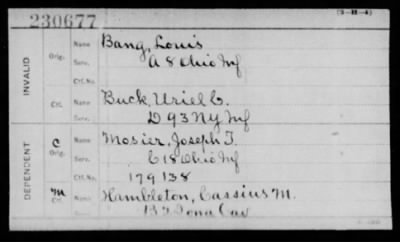 230677
(3-11-4)
INVALID
Orig. Name Bang, Louis
Serv. A 8 Ohio Inf
Ctf. No.
Ctf. Name Buck, Uriel C.
Serv. D 93 NY Inf
DEPENDENT
C Orig. Name Mosier, Joseph T.
Serv. C 18 Ohio Inf
Ctf. No. 179138
M Ctf. Name Hambleton, Cassius M.
Cav